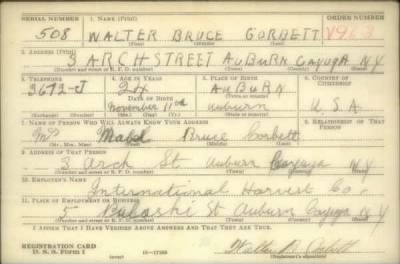 SERIAL NUMBER 1. NAME (Print) ORDER NUMBER
508 WALTER BRUCE CORBETT V963
(First) (Middle) (Last)
2. ADDRESS (Print)
3 ARCH STREET AUBURN Cayuga N.Y.
(Number and street or R. F. D. number) (Town) (County) (State)
3. TELEPHONE 4. AGE IN YEARS 5. PLACE OF BIRTH 6. COUNTRY OF CITIZENSHIP
3672-J 24 AUBURN
DATE OF BIRTH (Town or county)
November 11 auburn U.S.A.
(Exchange) (Number) (Mo.) (Day) (Yr.) (State or country)
7. NAME OF PERSON WHO WILL ALWAYS KNOW YOUR ADDRESS 8. RELATIONSHIP OF THAT PERSON
Mrs Mabel Bruce Corbett
(Mr., Mrs., Miss) (First) (Middle) (Last)
9. ADDRESS OF THAT PERSON
3 Arch St Auburn Cayuga N.Y
(Number and street or R. F. D. number) (Town) (County) (State)
10. EMPLOYER'S NAME
International Harvest Co.
11. PLACE OF EMPLOYMENT OR BUSINESS
5 St Auburn Cayuga N.Y
(Number and street or R. F. D. number) (Town) (County) (State)
I AFFIRM THAT I HAVE VERIFIED ABOVE ANSWERS AND THAT THEY ARE TRUE.
REGISTRATION CARD
D. S. S. Form 1 16-17105 Walter B. Corbett
(Registrant's signature)